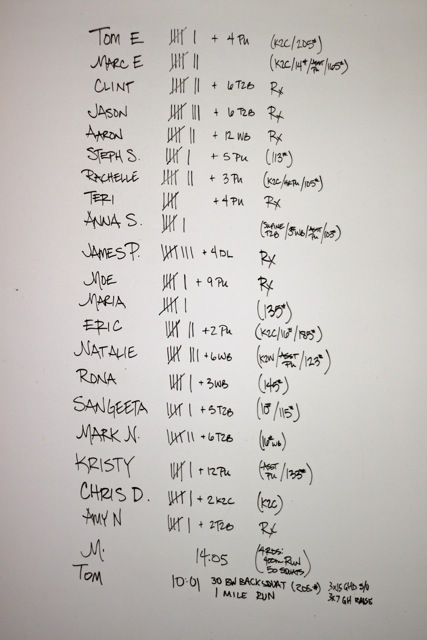 TOM E 𝍸 I + 4 PU (K2C/205#)
MARC E 𝍸 II (K2C/14#/ASST PU/165#)
CLINT 𝍸 II + 6 T2B Rx
JASON 𝍸 III + 6 T2B Rx
AARON 𝍸 II + 12 WB Rx
STEPH S. 𝍸 I + 5 PU (113#)
RACHELLE 𝍸 II + 3 PU (K2C/ PU/105#)
TERI 𝍸 + 4 PU Rx
ANNA S. 𝍸 I (SUPINE T2B/ WB/ASST PU/103#)
JAMES P. 𝍸 IIII + 4 DL Rx
MOE 𝍸 I + 9 PU Rx
MARIA 𝍸 I (135#)
ERIC 𝍸 II + 2 PU (K2C/16#/185#)
NATALIE 𝍸 III + 6 WB (K2W/ASST PU/123#)
RONA 𝍸 I + 3 WB (145#)
SANGEETA 𝍸 I + 5 T2B (10#/115#)
MARK N. 𝍸 II + 6 T2B (16# WB)
KRISTY 𝍸 I + 12 PU (ASST PU/135#)
CHRIS D. 𝍸 I + 2 K2C (K2C)
AMY N 𝍸 I + 2 T2B Rx
M. 14:05 (4 RDS: 400M RUN 50 SQUATS)
TOM 10:01 30 BW BACK SQUAT (205#) 3x15 GHD S/U
1 MILE RUN 3x7 GH RAISE